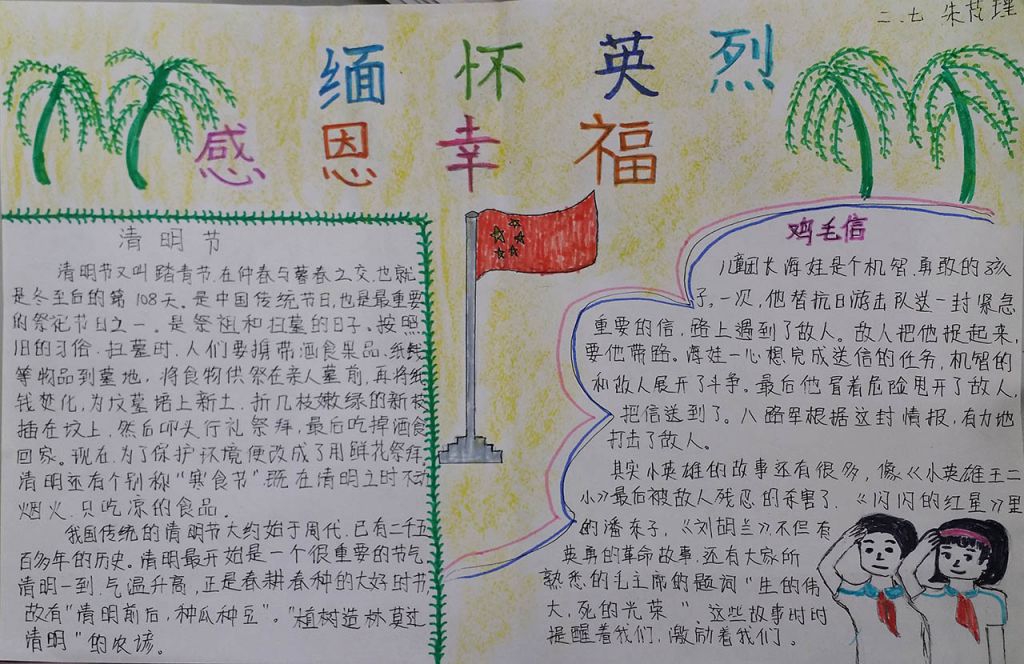 二.七 朱茂理
缅怀英烈
感恩幸福
清明节
清明节又叫踏青节,在仲春与暮春之交,也就
是冬至后的第108天。是中国传统节日,也是最重要
的祭祀节日之一。是祭祖和扫墓的日子。按照
旧的习俗,扫墓时,人们要携带酒食果品、纸钱
等物品到墓地,将食物供祭在亲人墓前,再将纸
钱焚化,为坟墓培上新土,折几枝嫩绿的新枝
插在坟上,然后叩头行礼祭拜,最后吃掉酒食
回家。现在,为了保护环境便改成了用鲜花祭拜
清明还有个别称“寒食节”既在清明立时不动
烟火,只吃凉的食品。
我国传统的清明节大约始于周代,已有二千五
百多年的历史。清明最开始是一个很重要的节气,
清明一到,气温升高,正是春耕春种的大好时节,
故有“清明前后,种瓜种豆”。“植树造林莫过
清明”的农谚。
鸡毛信
儿童团长海娃是个机智、勇敢的孩
子,一次,他替抗日游击队送一封紧急
重要的信,路上遇到了敌人。敌人把他捉起来,
要他带路。海娃一心想完成送信的任务,机智的
和敌人展开了斗争。最后他冒着危险甩开了敌人,
把信送到了。八路军根据这封情报,有力地
打击了敌人。
其实小英雄的故事还有很多,像《小英雄王二
小》最后被敌人残忍的杀害了,《闪闪的红星》里
的潘东子,《刘胡兰》不但有
英勇的革命故事,还有大家所
熟悉的毛主席的题词“生的伟
大,死的光荣”、这些故事时时
提醒着我们,激励着我们。